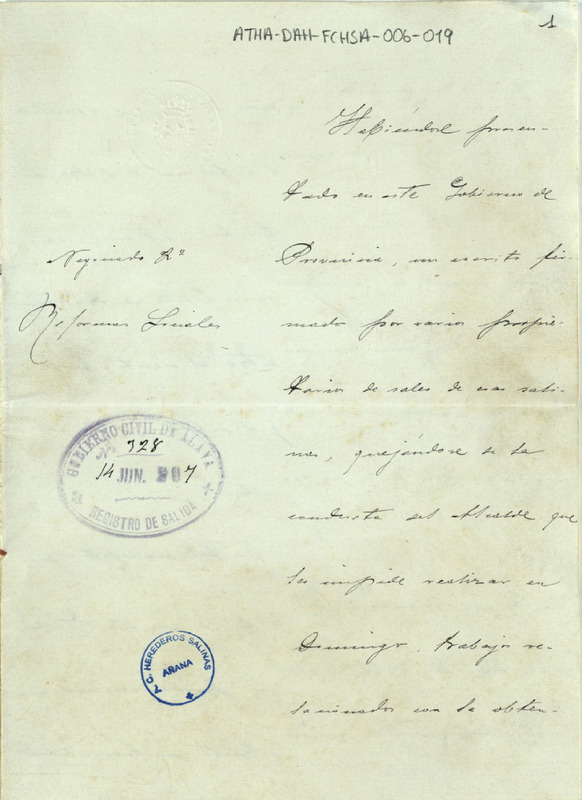 ATHA-DAH-FCHSA-006-019
1
Habiéndose presen-
tado en este Gobierno de
Provincia, un escrito fir-
mado por varios propie-
tarios de sales de esas sali-
nas, quejándose de la
conducta del Alcalde que
les impide realizar en
Domingo, trabajos re-
lacionados con la obten-
Negociado 2º
Reformas Sociales
GOBIERNO CIVIL DE ALAVA
Nº 328
14 JUN. 907
REGISTRO DE SALIDA
HEREDEROS SALINAS
ARANA